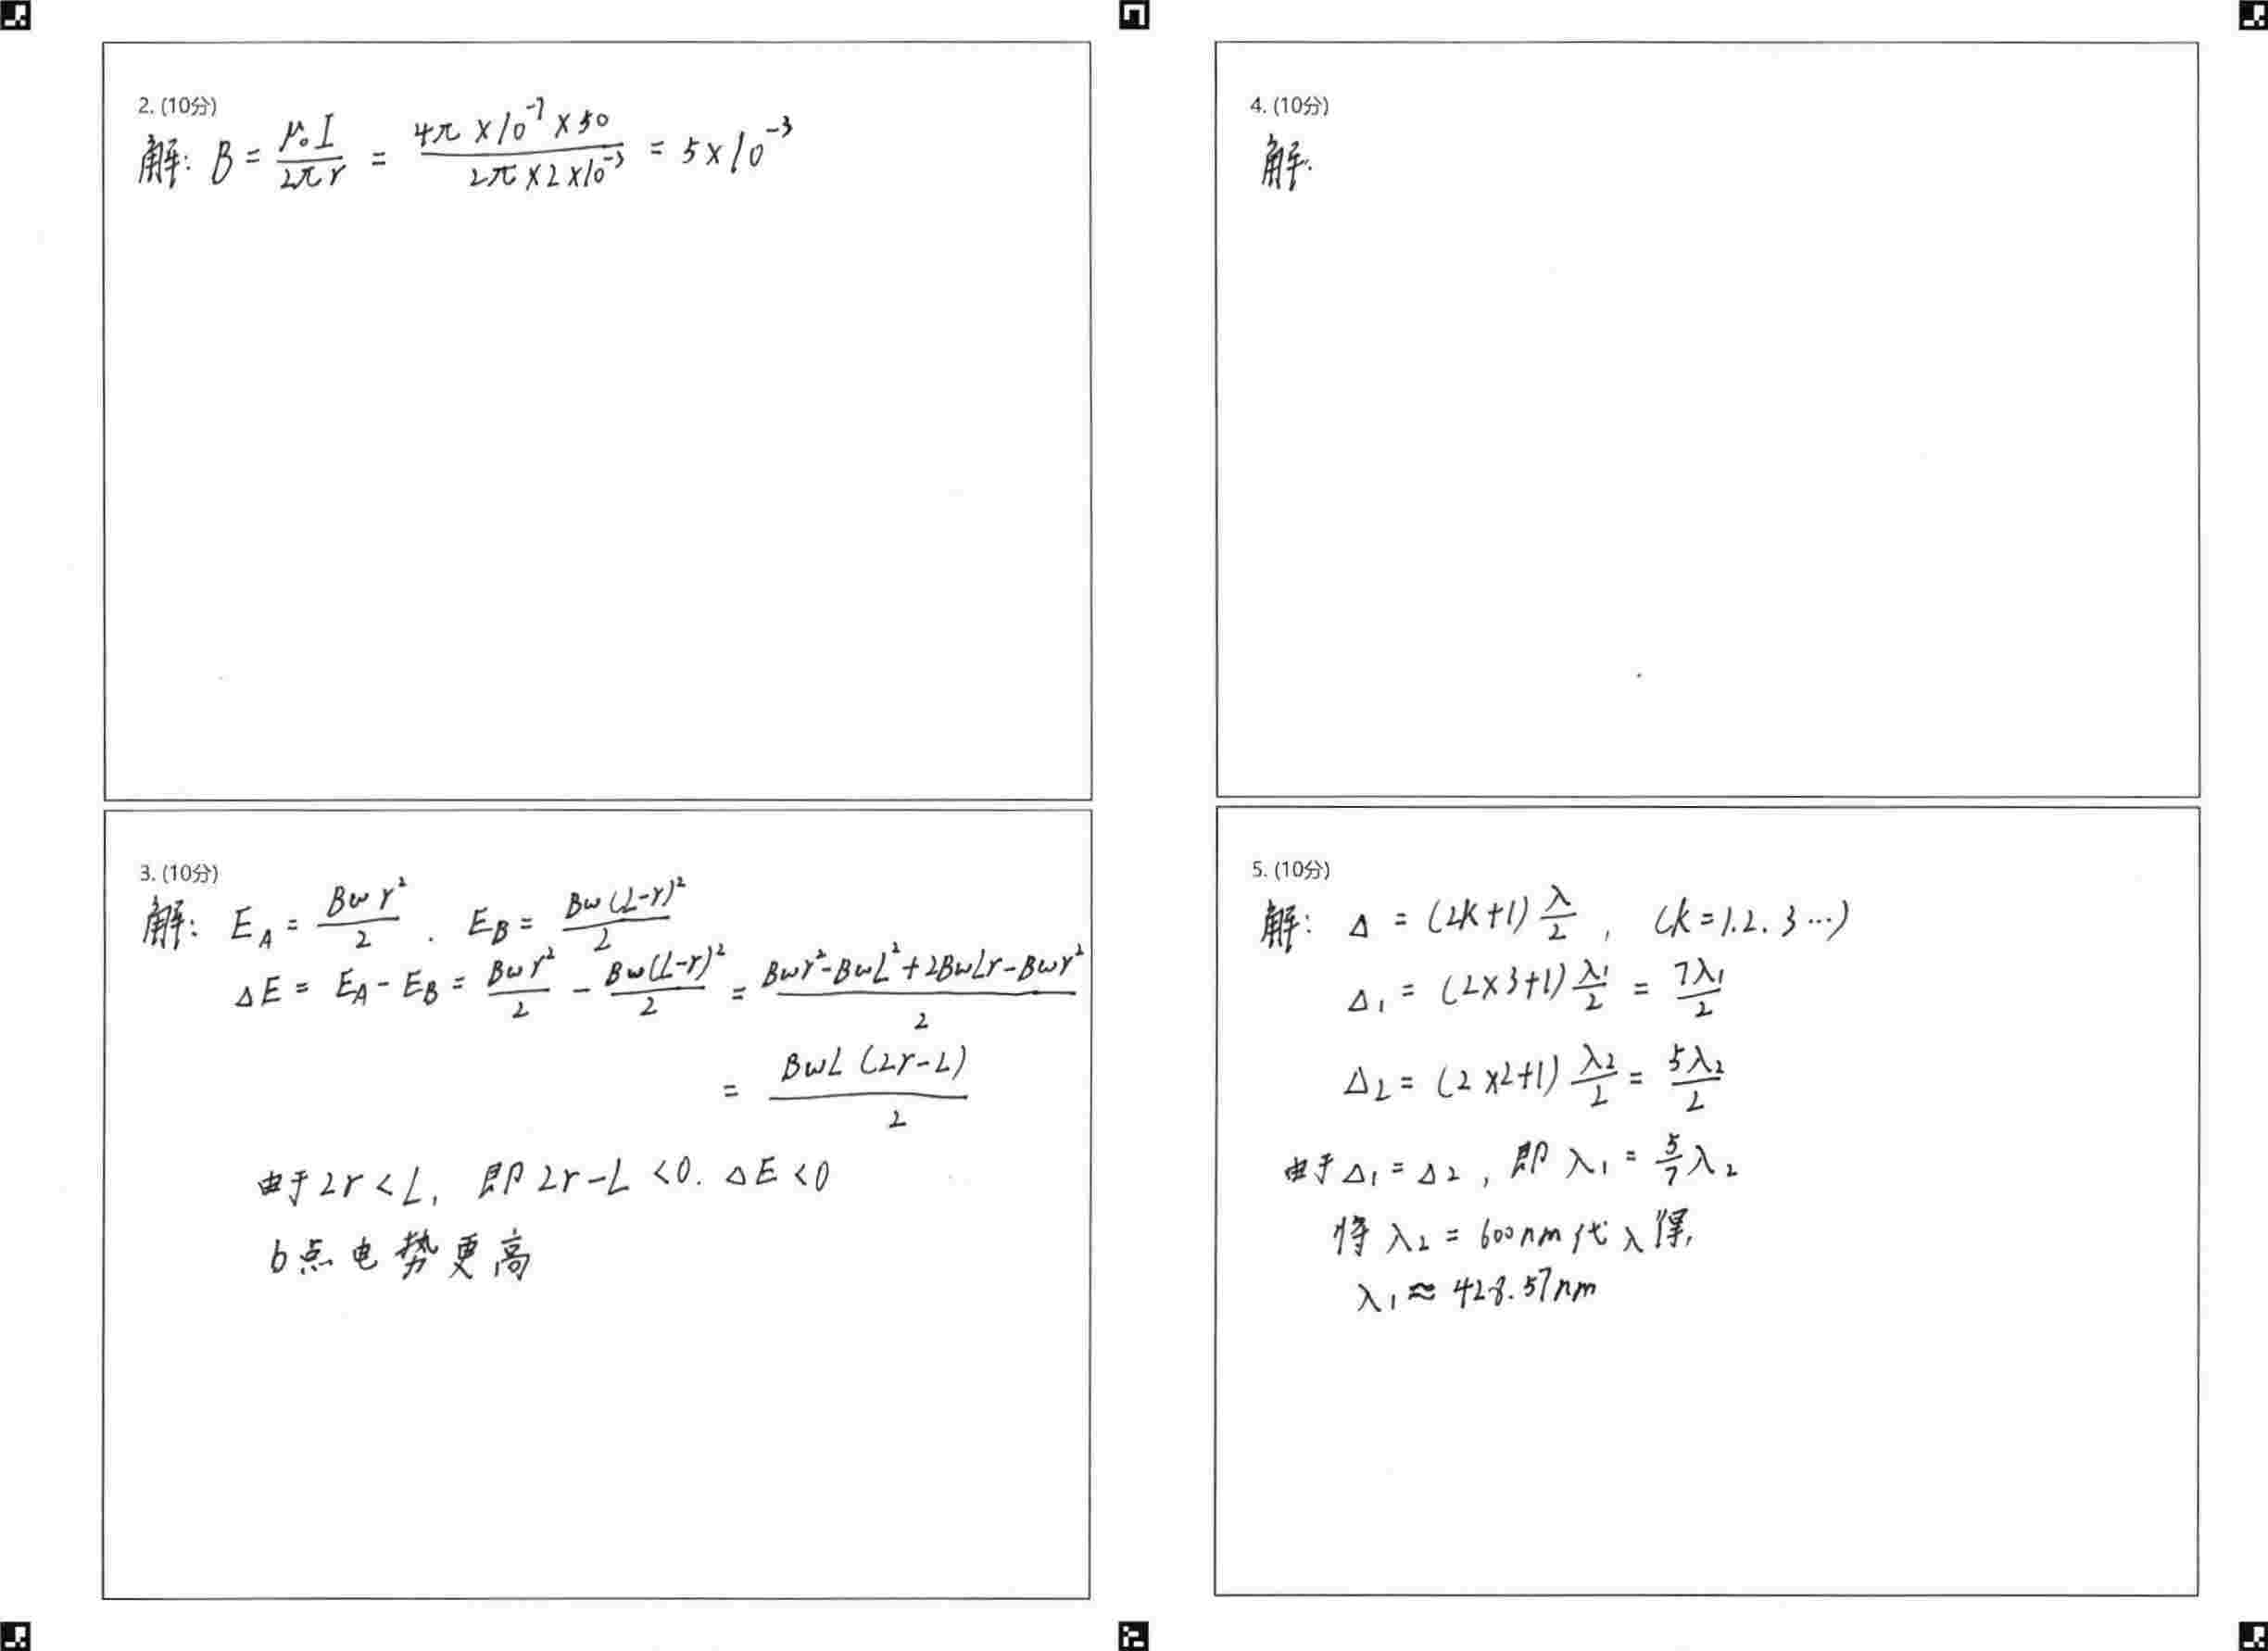 2. (10分)
解: B = μ₀I/2πr = 4π×10⁻⁷×50/2π×2×10⁻³ = 5×10⁻³
3. (10分)
解: E_A = Bωr²/2 . E_B = Bω(L-r)²/2
ΔE = E_A - E_B = Bωr²/2 - Bω(L-r)²/2 = Bωr²-BωL²+2BωLr-Bωr²/2
= BωL(2r-L)/2
由于2r<L, 即2r-L<0. ΔE<0
b点电势更高
4. (10分)
解:
5. (10分)
解: Δ = (2k+1)λ/2, (k=1.2.3…)
Δ₁ = (2×3+1)λ₁/2 = 7λ₁/2
Δ₂ = (2×2+1)λ₂/2 = 5λ₂/2
由于Δ₁=Δ₂, 即λ₁=5/7λ₂
将λ₂=600nm代入得,
λ₁≈428.57nm